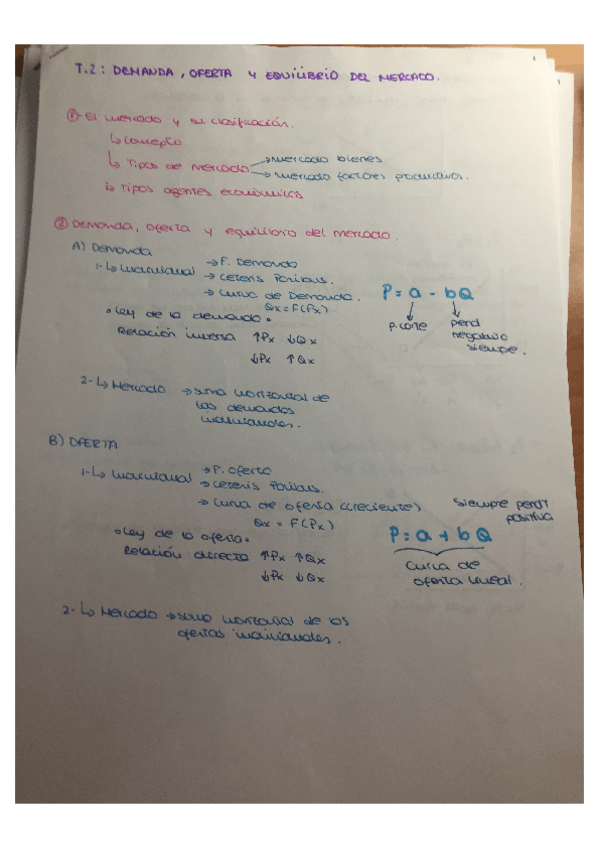 T.2: DEMANDA, OFERTA Y EQUILIBRIO DEL MERCADO.
① El mercado y su clasificación.
↳ Concepto
↳ Tipos de mercado → mercado bienes
→ mercado factores productivos.
↳ Tipos agentes económicos
② Demanda, oferta y equilibrio del mercado.
A) Demanda
1-↳ Individual → F. Demanda
→ Ceteris Paribus.
→ Curva de Demanda. P = a - bQ
Qx = F(Px)
• Ley de la demanda •
p.corte pend
negativo
siempre.
Relación inversa ↑Px ↓Qx
↓Px ↑Qx
2-↳ Mercado → suma horizontal de
las demandas
individuales.
B) OFERTA
1-↳ Individual → F. oferta
→ Ceteris Paribus.
→ Curva de oferta (creciente)
Qx = F(Px)
siempre pendt
positiva
• Ley de la oferta • P = a + bQ
Relación directa ↑Px ↑Qx
↓Px ↓Qx
Curva de
oferta lineal.
2-↳ Mercado → suma horizontal de las
ofertas individuales.